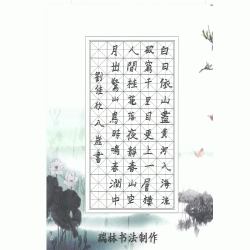 白日依山盡黃河入海流
欲窮千里目更上一層樓
人間桂花落夜靜春山空
月出驚山鳥時鳴春澗中
劉佳欣八歲書
瑞林书法制作